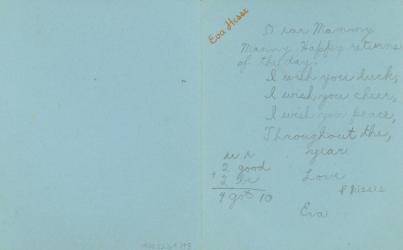 Eva Hesse
Dear Mammy
Many Happy returns
of the day.
I wish you luck,
I wish you cheer,
I wish you peace,
Throughout the,
year
Love
& kisses
Eva
2 good
+ 2
4 got 10